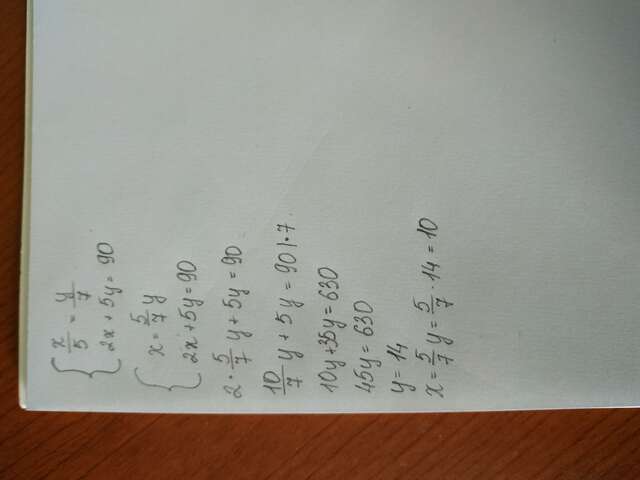 x/5 = y/7
2x + 5y = 90
x = 5/7 y
2x + 5y = 90
2 · 5/7 y + 5y = 90
10/7 y + 5y = 90 | · 7
10y + 35y = 630
45y = 630
y = 14
x = 5/7 y = 5/7 · 14 = 10